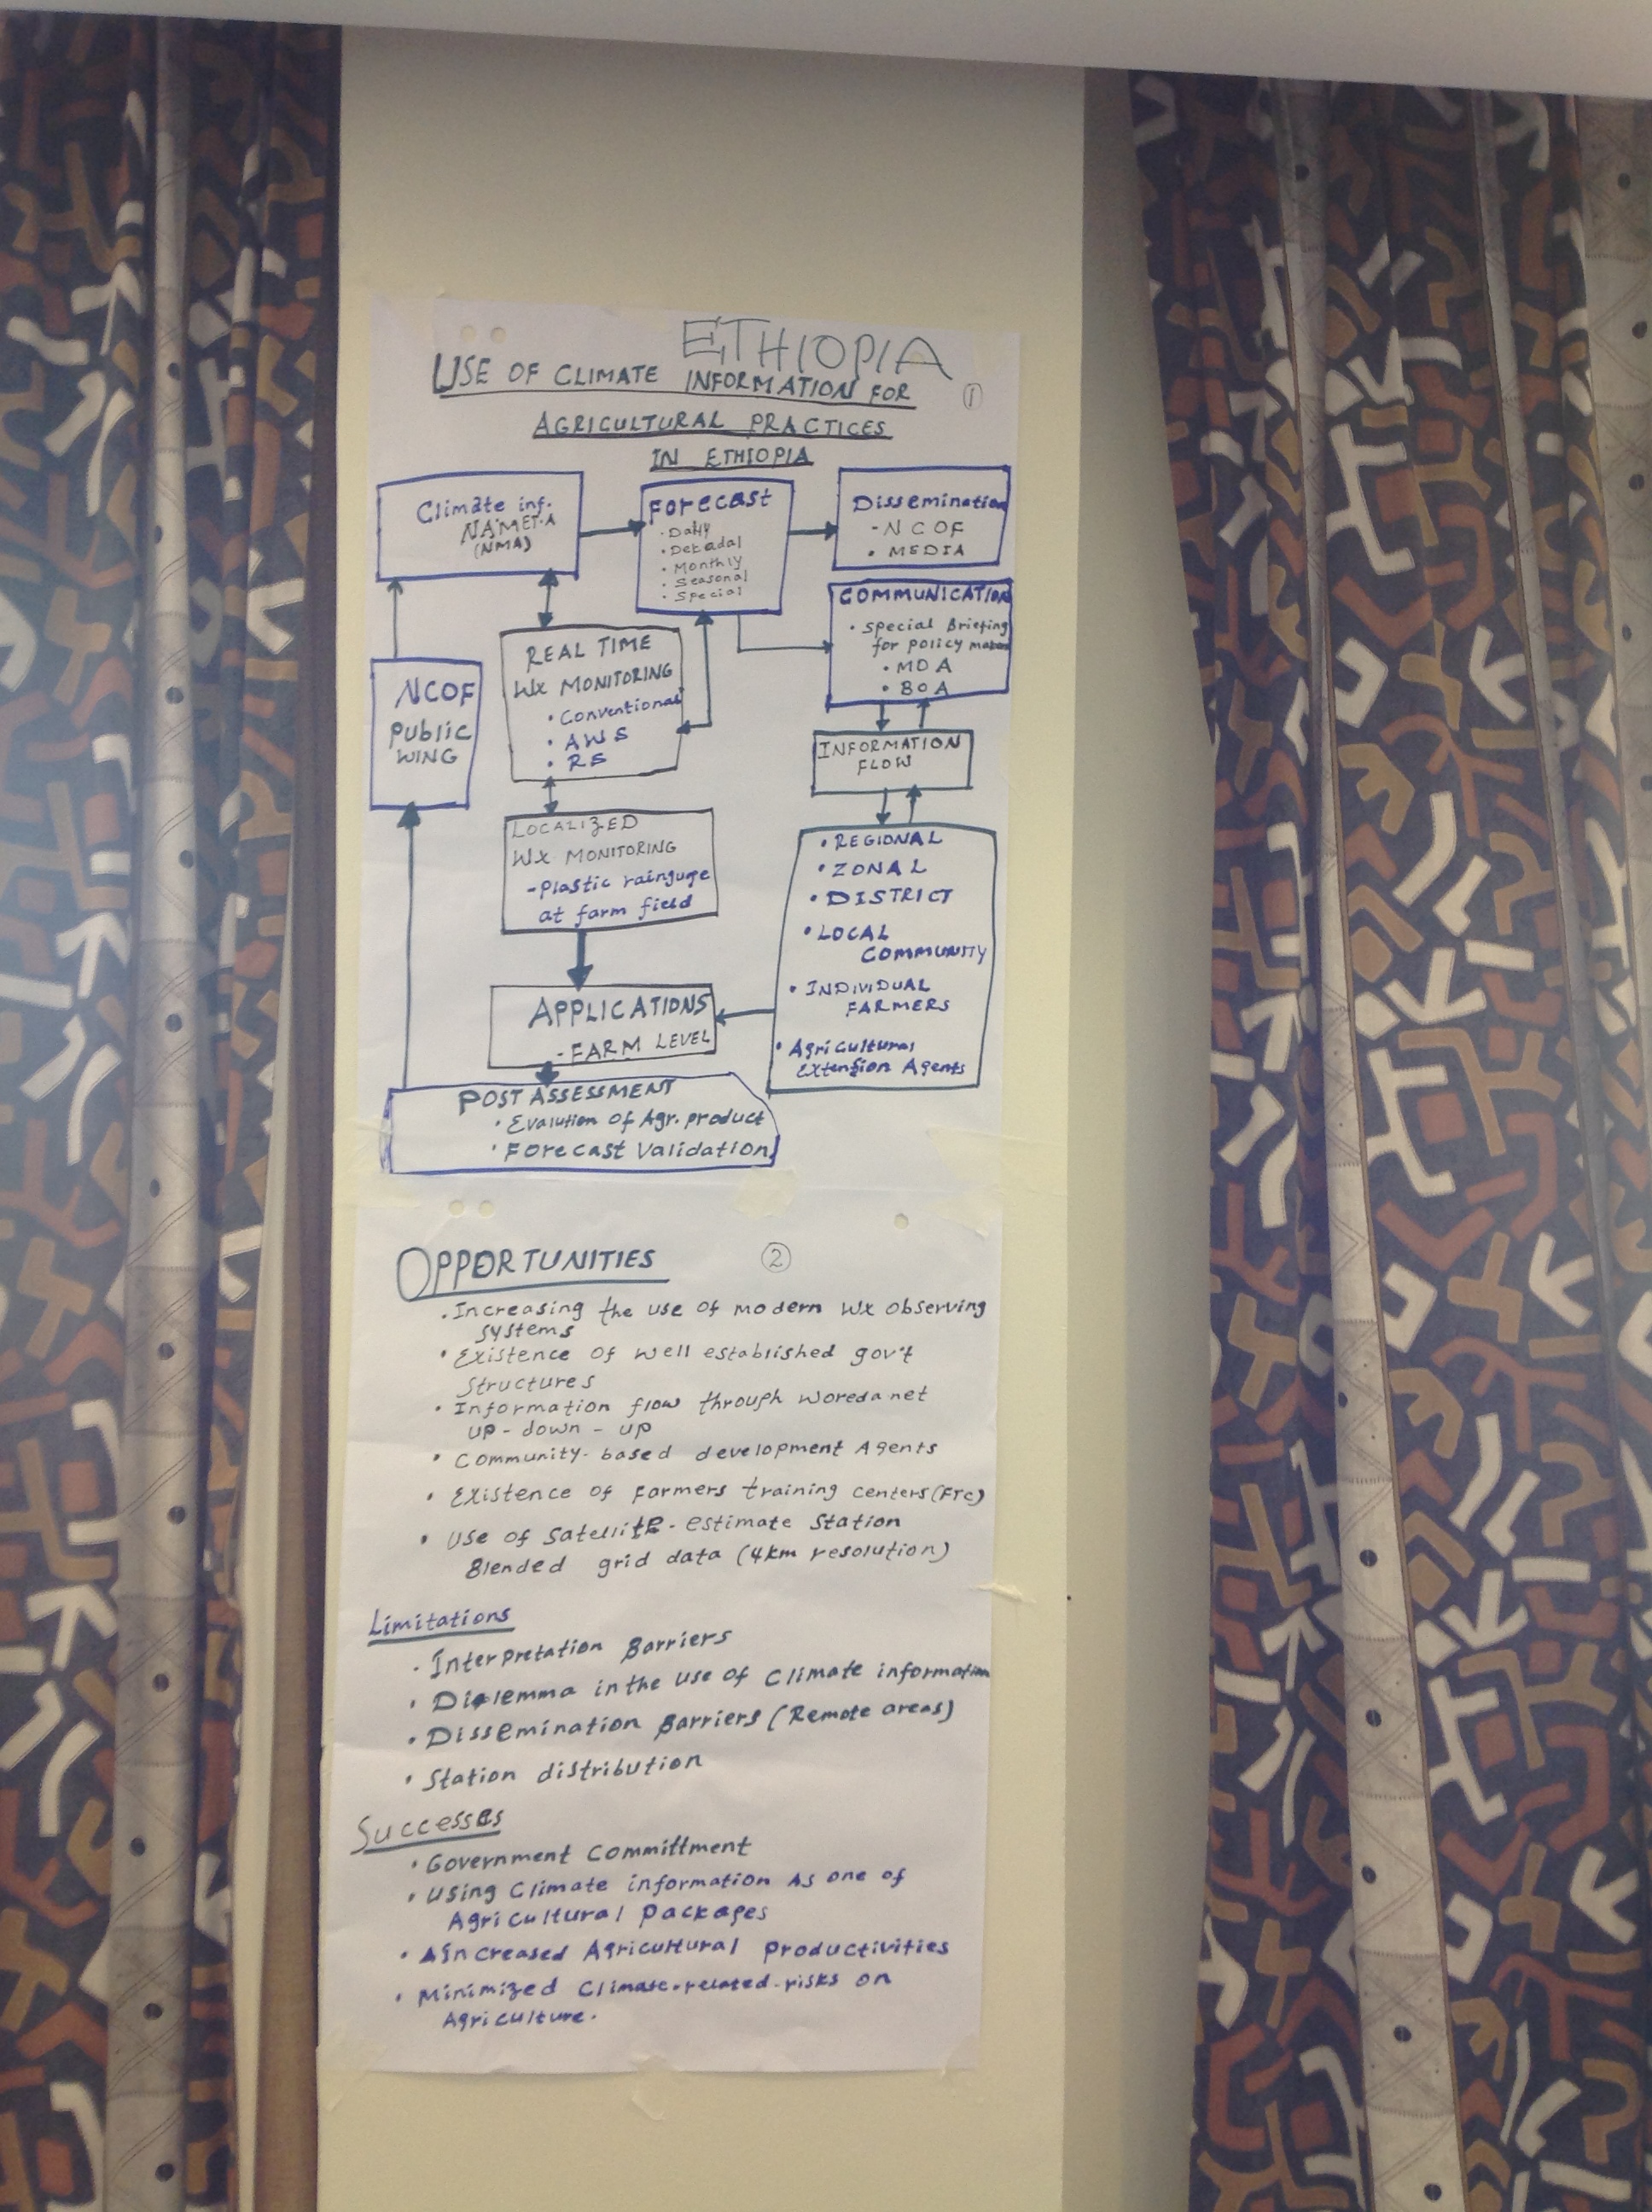 ETHIOPIA
USE OF CLIMATE INFORMATION FOR
①
AGRICULTURAL PRACTICES
IN ETHIOPIA
Climate inf.
NAMET.A
(NMA)
Forecast
· Daily
· Dekadal
· Monthly
· Seasonal
· Special
Dissemination
- NCOF
• MEDIA
COMMUNICATION
• Special Briefing
for policy makers
• MOA
• BOA
NCOF
Public
WING
REAL TIME
Wx MONITORING
• Conventional
• AWS
• RS
INFORMATION
FLOW
LOCALIZED
Wx MONITORING
- Plastic rainguge
at farm field
• REGIONAL
• ZONAL
• DISTRICT
• LOCAL
COMMUNITY
• INDIVIDUAL
FARMERS
• Agricultural
Extension Agents
APPLICATIONS
- FARM LEVEL
POST ASSESSMENT
• Evalution of Agr. product
• Forecast Validation
OPPORTUNITIES
②
• Increasing the use of modern Wx observing
systems
• Existence of well established gov't
structures
• Information flow through woreda net
up - down - up
• Community-based development Agents
• Existence of Farmers training centers (FTC)
• Use of Satellite-estimate Station
Blended grid data (4km resolution)
Limitations
• Interpretation Barriers
• Dilemma in the use of climate information
• Dissemination Barriers (Remote areas)
• Station distribution
Successes
• Government Committment
• Using Climate information As one of
Agricultural packages
• Increased Agricultural productivities
• Minimized Climate-related-risks on
Agriculture.